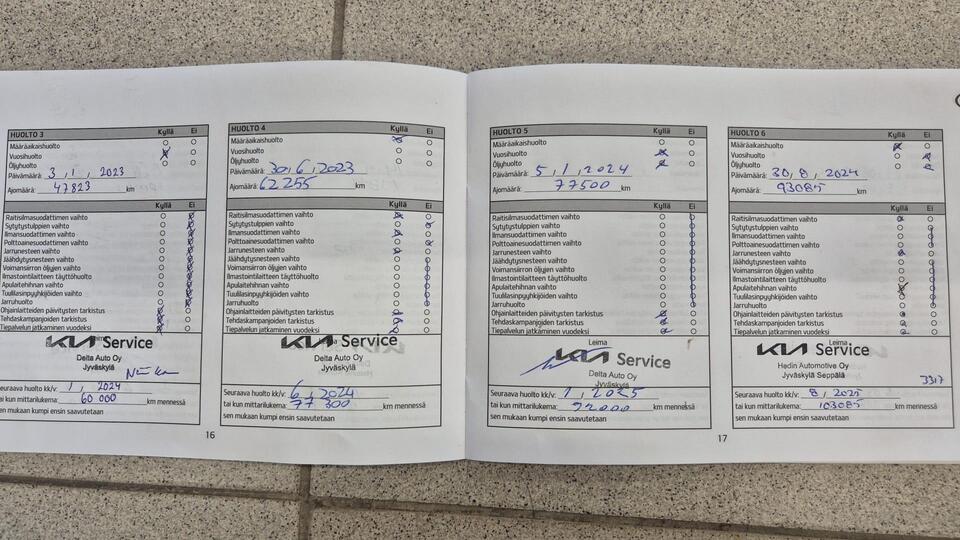 HUOLTO 3 Kyllä Ei
Määräaikaishuolto
Vuosihuolto
Öljyhuolto
Päivämäärä: 3, 1, 2023
Ajomäärä: 47823 km
Raitisilmasuodattimen vaihto
Sytytystulppien vaihto
Ilmansuodattimen vaihto
Polttoainesuodattimen vaihto
Jarrunesteen vaihto
Jäähdytysnesteen vaihto
Voimansiirron öljyjen vaihto
Ilmastointilaitteen täyttöhuolto
Apulaitehihnan vaihto
Tuulilasinpyyhkijöiden vaihto
Jarruhuolto
Ohjainlaitteiden päivitysten tarkistus
Tehdaskampanjoiden tarkistus
Tiepalvelun jatkaminen vuodeksi
KIA Service
Delta Auto Oy
Jyväskylä
Seuraava huolto kk/v: 1, 2024
tai kun mittarilukema: 60 000 km mennessä
sen mukaan kumpi ensin saavutetaan
16
HUOLTO 4 Kyllä Ei
Määräaikaishuolto
Vuosihuolto
Öljyhuolto
Päivämäärä: 30, 6, 2023
Ajomäärä: 62255 km
Raitisilmasuodattimen vaihto
Sytytystulppien vaihto
Ilmansuodattimen vaihto
Polttoainesuodattimen vaihto
Jarrunesteen vaihto
Jäähdytysnesteen vaihto
Voimansiirron öljyjen vaihto
Ilmastointilaitteen täyttöhuolto
Apulaitehihnan vaihto
Tuulilasinpyyhkijöiden vaihto
Jarruhuolto
Ohjainlaitteiden päivitysten tarkistus
Tehdaskampanjoiden tarkistus
Tiepalvelun jatkaminen vuodeksi
KIA Service
Delta Auto Oy
Jyväskylä
Seuraava huolto kk/v: 6, 2024
tai kun mittarilukema: 77 300 km mennessä
sen mukaan kumpi ensin saavutetaan
HUOLTO 5 Kyllä Ei
Määräaikaishuolto
Vuosihuolto
Öljyhuolto
Päivämäärä: 5, 1, 2024
Ajomäärä: 77500 km
Raitisilmasuodattimen vaihto
Sytytystulppien vaihto
Ilmansuodattimen vaihto
Polttoainesuodattimen vaihto
Jarrunesteen vaihto
Jäähdytysnesteen vaihto
Voimansiirron öljyjen vaihto
Ilmastointilaitteen täyttöhuolto
Apulaitehihnan vaihto
Tuulilasinpyyhkijöiden vaihto
Jarruhuolto
Ohjainlaitteiden päivitysten tarkistus
Tehdaskampanjoiden tarkistus
Tiepalvelun jatkaminen vuodeksi
Leima
KIA Service
Delta Auto Oy
Jyväskylä
Seuraava huolto kk/v: 1, 2025
tai kun mittarilukema: 92000 km mennessä
sen mukaan kumpi ensin saavutetaan
17
HUOLTO 6 Kyllä Ei
Määräaikaishuolto
Vuosihuolto
Öljyhuolto
Päivämäärä: 30, 8, 2024
Ajomäärä: 93085 km
Raitisilmasuodattimen vaihto
Sytytystulppien vaihto
Ilmansuodattimen vaihto
Polttoainesuodattimen vaihto
Jarrunesteen vaihto
Jäähdytysnesteen vaihto
Voimansiirron öljyjen vaihto
Ilmastointilaitteen täyttöhuolto
Apulaitehihnan vaihto
Tuulilasinpyyhkijöiden vaihto
Jarruhuolto
Ohjainlaitteiden päivitysten tarkistus
Tehdaskampanjoiden tarkistus
Tiepalvelun jatkaminen vuodeksi
Leima
KIA Service
Hedin Automotive Oy
Jyväskylä Seppälä
3317
Seuraava huolto kk/v: 8, 2025
tai kun mittarilukema: 103085 km mennessä
sen mukaan kumpi ensin saavutetaan